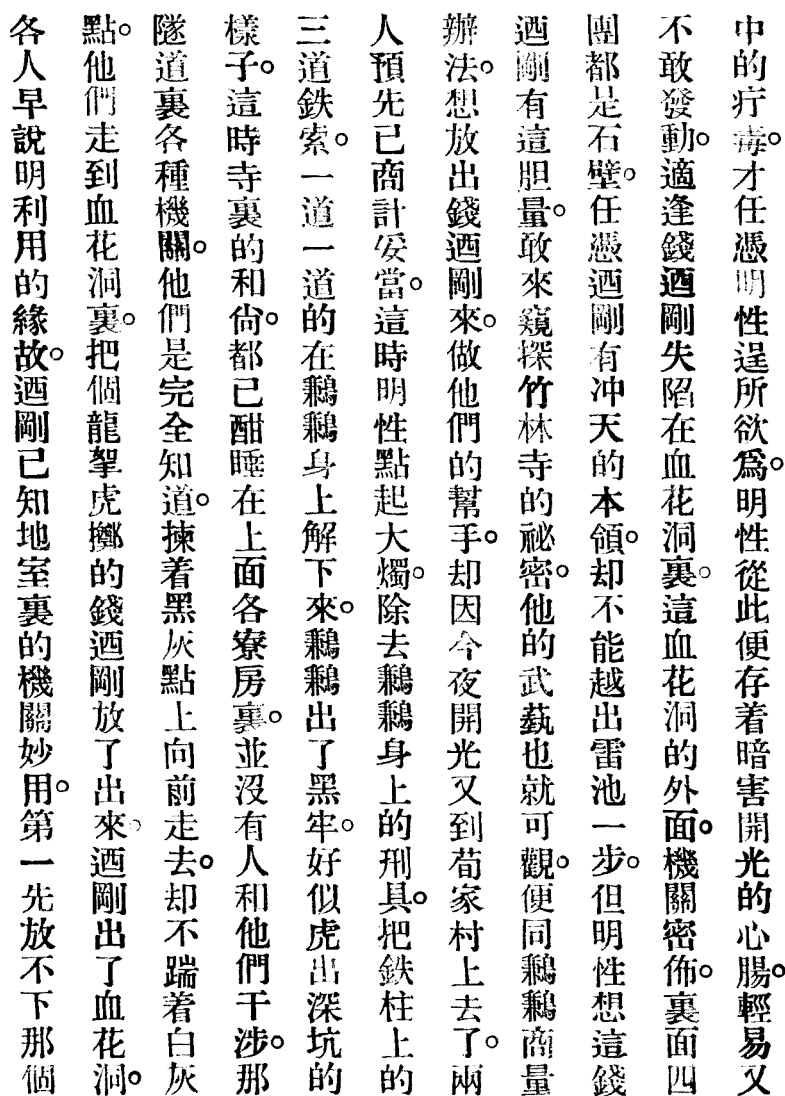 中的疔毒。才任憑明性逞所欲爲。明性從此便存着暗害開光的心腸。輕易又
不敢發動。適逢錢迺剛失陷在血花洞裏。這血花洞的外面。機關密佈。裏面四
團都是石壁。任憑迺剛有冲天的本領。却不能越出雷池一步。但明性想這錢
迺剛有這胆量。敢來窺探竹林寺的祕密。他的武藝也就可觀。便同鸘鸘商量
辦法。想放出錢迺剛來。做他們的幫手。却因今夜開光又到荀家村上去了。兩
人預先已商計妥當。這時明性點起大燭。除去鸘鸘身上的刑具。把鉄柱上的
三道鉄索。一道一道的在鸘鸘身上解下來。鸘鸘出了黑牢。好似虎出深坑的
樣子。這時寺裏的和尙。都已酣睡在上面各寮房裏。並沒有人和他們干涉。那
隧道裏各種機關。他們是完全知道。揀着黑灰點上向前走去。却不踹着白灰
點。他們走到血花洞裏。把個龍拏虎擲的錢迺剛放了出來。迺剛出了血花洞。
各人早說明利用的緣故。迺剛已知地室裏的機關妙用。第一先放不下那個